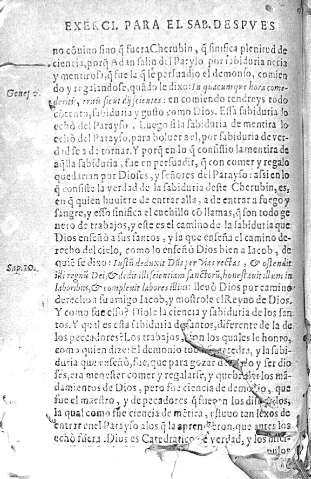 EXERCI. PARA EL SAB. DESPVES
no cõuino sino q̃ fuera Cherubin, q̃ sinifica plenitud de
ciencia, porq̃ Adan salio del Parayso por sabiduria necia
y mentirosa, q̃ fue la q̃ le persuadio el demonio, comien
do y regalandose, quãdo le dixo: In quacumque hora come-
Genes. 3.
deritis, eritis sicut dij scientes: en comiendo tendreys todo
cõtento, sabiduria y gusto como Dios. Essa sabiduria lo
echò del Parayso. Luego si la sabiduria de mentira lo
echò del Parayso, para boluer a el, por sabiduria de ver-
dad se a de tornar. Y porq̃ en lo q̃ consistio la mentira de
aq̃lla sabiduria, fue en persuadir, q̃ con comer y regalo
quedarian por Dioses, y señores del Parayso: assi en lo
q̃ consiste la verdad de la sabiduria deste Cherubin, es,
en q̃ quien huuiere de entrar alla, a de entrar a fuego y
sangre, y esso sinifica el cuchillo cõ llamas, q̃ son todo ge
nero de trabajos, y este es el camino de la sabiduria que
Dios enseñò a sus santos, y la que enseña el camino de-
recho del cielo, como lo enseñò Dios bien a Iacob, de
Sap. 10.
quiẽ se dixo: Iustũ deduxit Dñs per vias rectas, & ostendit
illi regnũ Dei, & dedit illi scientiam sanctorũ, honestauit illum in
laboribus, & compleuit labores illius: lleuò Dios por camino
derecho a su amigo Iacob, y mostrole el Reyno de Dios.
Y como fue esso? Diole la ciencia y sabiduria de los san-
tos. Y qual es esta sabiduria de santos, diferente de la de
los pecadores? Los trabajos, con los quales le honro,
como quien dize: El demonio tuuo catedra, y la sabi-
duria que enseñò, fue, que para gozar y ser dio-
ses, era menester comer y regalarse, y quebrar los mã-
damientos de Dios, pero fue ciencia de demonio, que
fue el maestro, y de pecadores q̃ fueron los dicipulos,
la qual como fue ciencia de mẽtira, estuuo tan lexos de
entrar en el Parayso a los q̃ la aprendieron, que antes los
echò fuera. Dios es Catedratico de verdad, y los